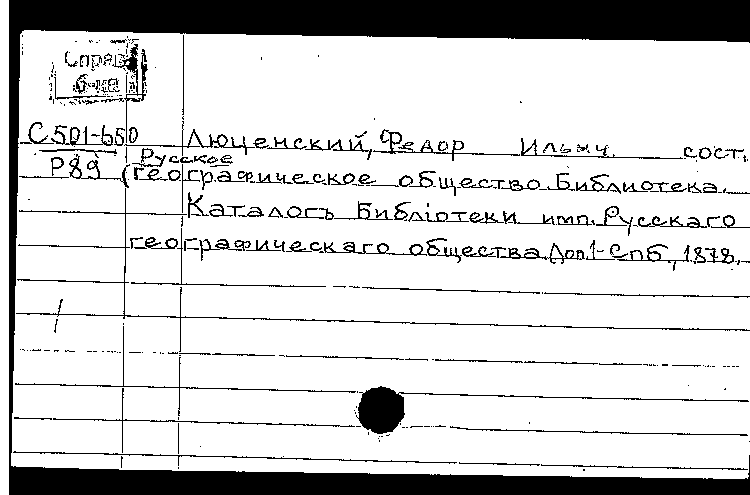 Справ
б-ка
С501-б50 Люценский, Федор Ильич. сост.
Р89 (Русское
географическое общество. Библиотека.
Каталогъ Библіотеки имп. Русскаго
географическаго общества. Доп. 1- Спб., 1878.